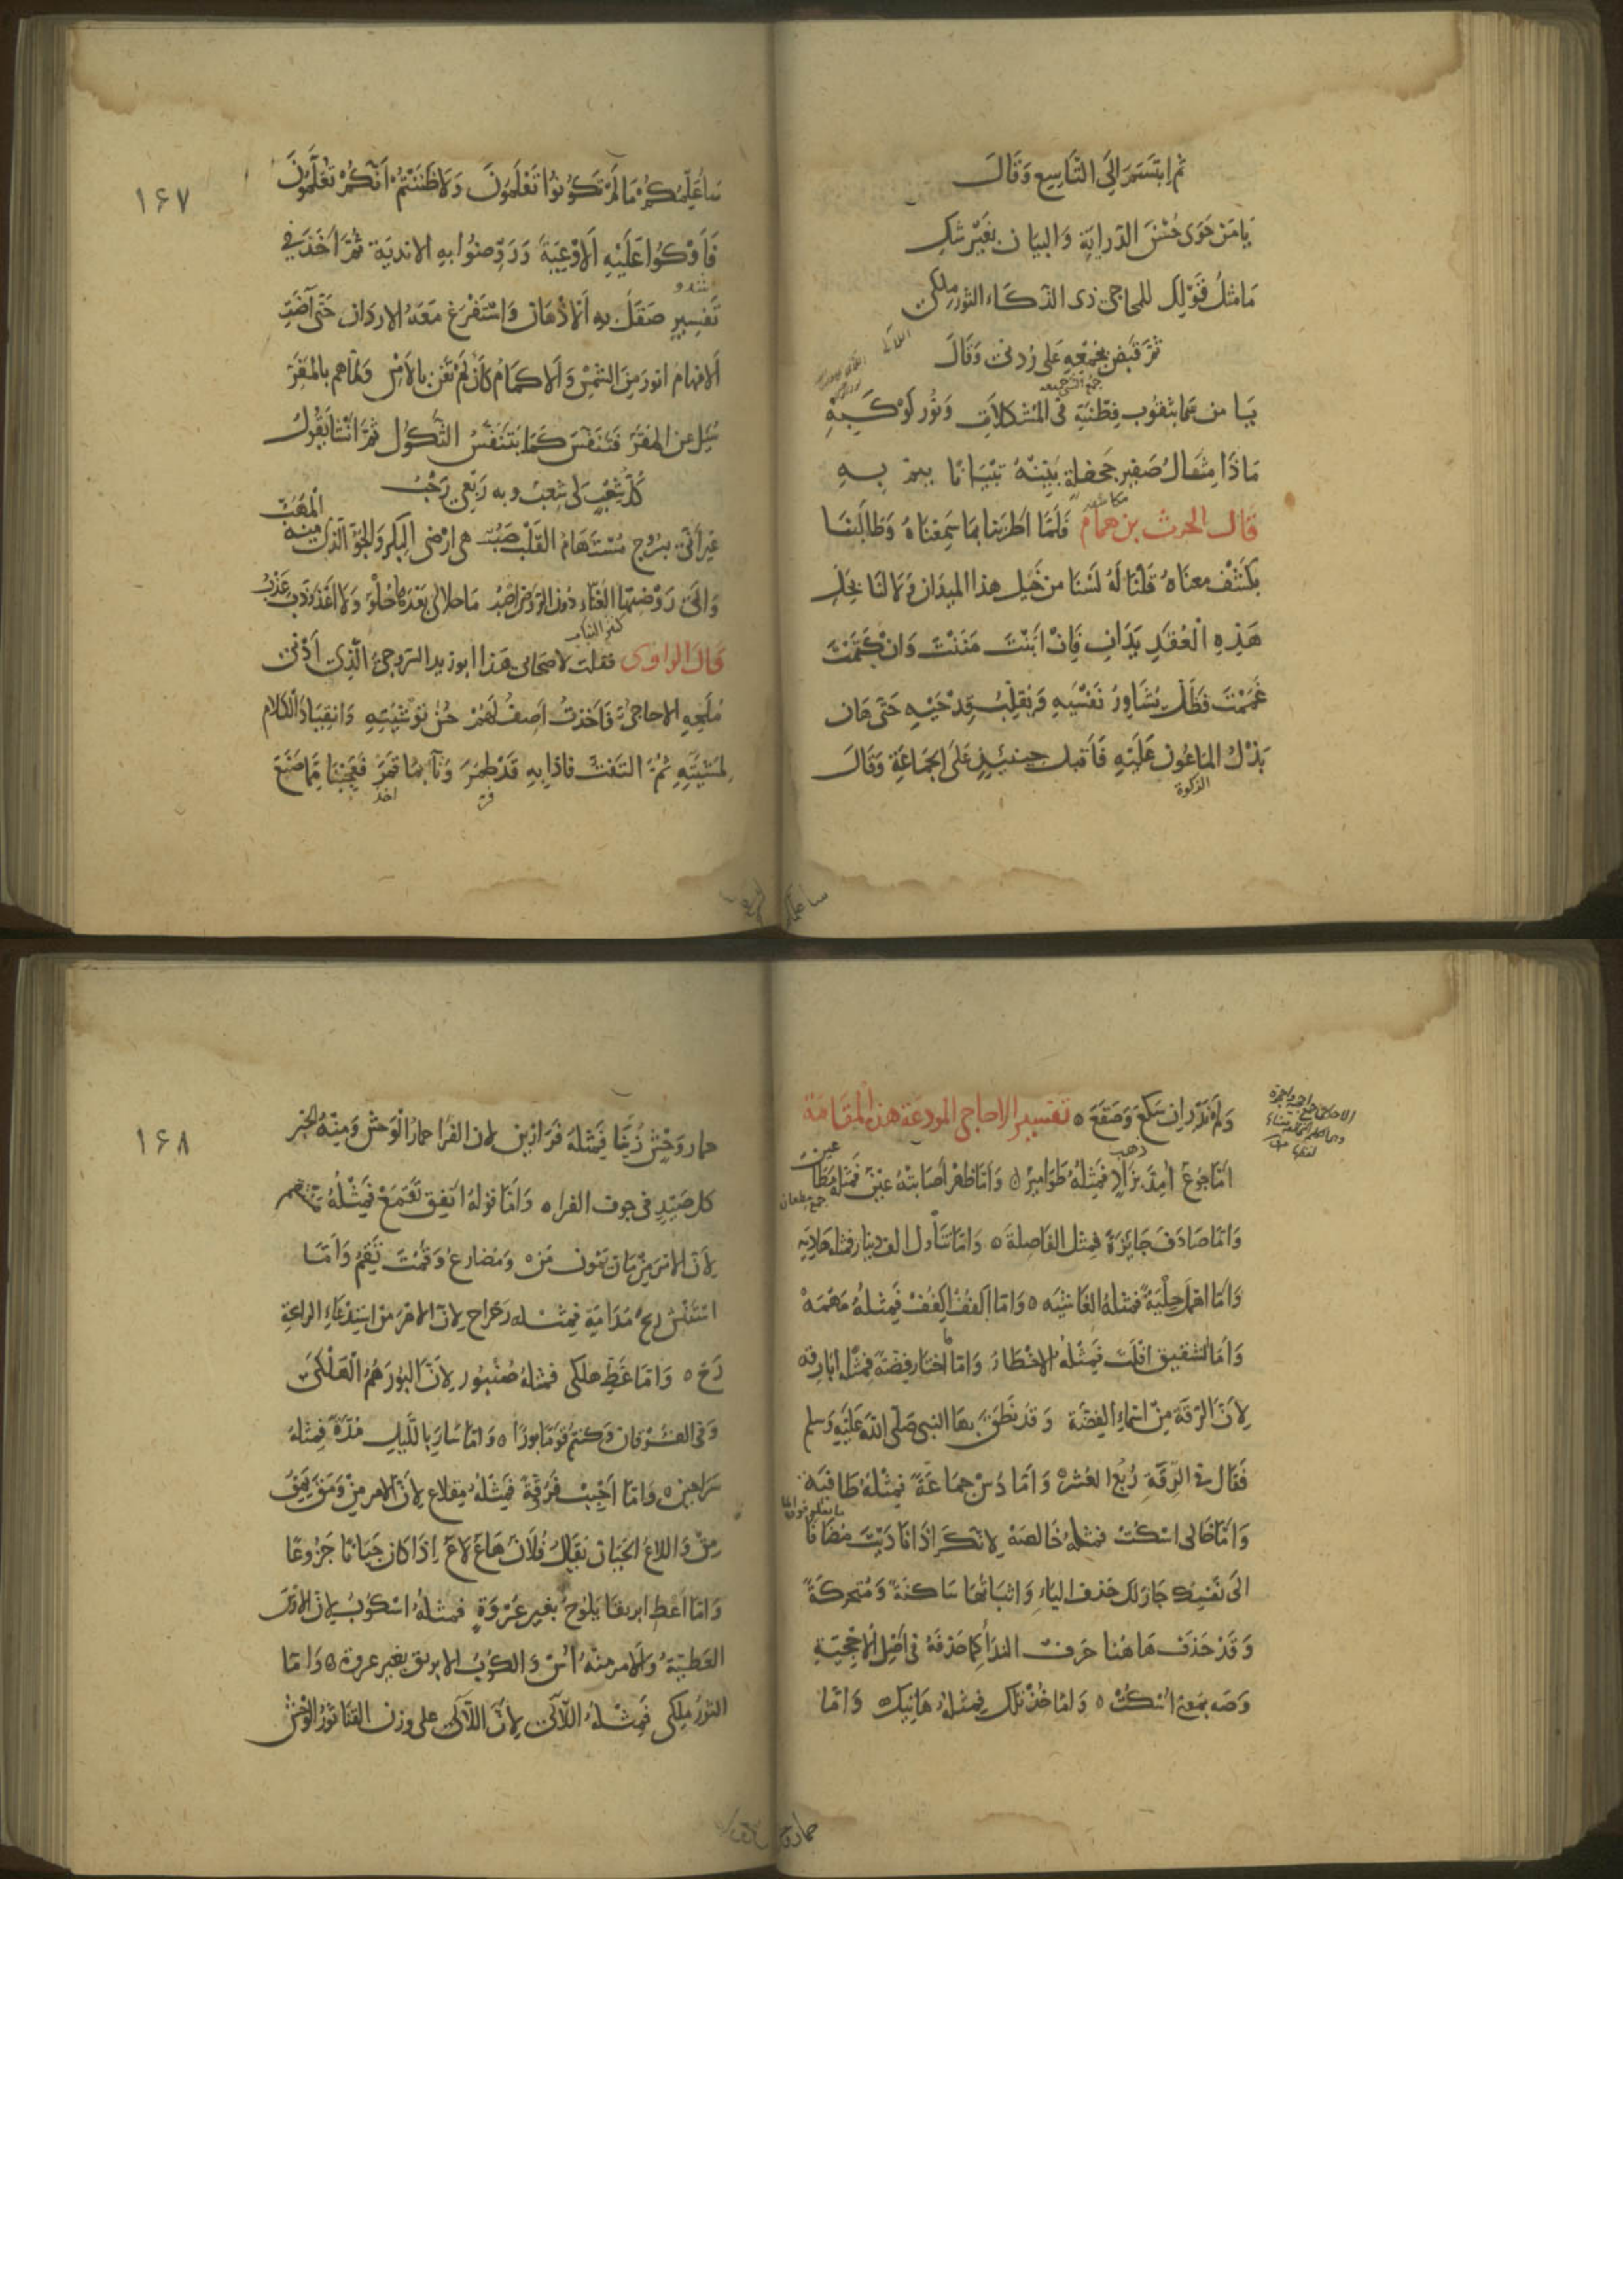 ثم ابتسم الى التاسع وقال
يا من حوى حسن الدراية والبيان بغير شك
ما مثل قولك للمحاجى ذى الذكاء الثور ملكى
ثم قبض بجمعه على ردنى وقال
يا من سما بثقوب فطنته فى المشكلات ونور كوكبه
ماذا مثال صفير جحفلة بينه تبيانا ينم به
قال الحرث بن همام فلما اطربنا بما سمعناه وطالبنا
بكشف معناه قلنا له لسنا من خيل هذا الميدان ولا لنا بحل
هذه العقد يدان فان ابنت مننت وان كتمت
غممت فظل يشاور نفسيه ويقلب قدحيه حتى هان
بذل الماعون عليه فاقبل حينئذ على الجماعة وقال
١٦٧
ساعلمكم ما لم تكونوا تعلمون ولا ظننتم انكم تعلمون
فاوكوا عليه الاوعية وروضوا به الاندية ثم اخذ فى
تفسير صقل به الاذهان واستفرغ معه الاردان حتى آضت
الافهام انور من الشمس والاكمام كان لم تغن بالامس ولما هم بالمفر
سئل عن المقر فتنفس كما يتنفس الثكول ثم انشا يقول
كل شعب لى شعب وبه ربعى رحب
غير انى بسروج مستهام القلب صب هى ارضى البكر والجو الذى منه المهب
والى روضتها الغناء دون الروض اصبو ما حلا لى بعدها حلو ولا اعذوذب عذب
قال الراوى فقلت لاصحابى هذا ابو زيد السروجى الذى ادنى
ملحه الاحاجى فاخذت اصف لهم حسن توشيته وانقياد الكلام
لمشيته ثم التفت فاذا به قد طمر وناء بما قمر فعجبنا مما صنع
ولم ندر اين سكع وصقع ٥ تفسير الاحاجى المودعة هذه المقامة
اما جوع امد بزاد فمثله طوامير ٥ واما ظهر اصابته عين فمثله مطاعين
واما صادف جائزة فمثل الفاصلة ٥ واما تناول الف دينار فمثله هادية
واما اهمل حلية فمثله الغاشيه ٥ واما اكفف اكفف فمثله مهمه
واما الشقيق افلت فمثله الاخطار واما ما اختار فضة فمثل ابارقه
لان الرقة من اسماء الفضة وقد نطق بها النبى صلى الله عليه وسلم
فقال فى الرقة ربع العشر ٥ واما دس جماعة فمثله طافية
واما خالى اسكت فمثله خالصه لانك اذا ناديت مضافا
الى نفسك جاز لك حذف الياء واثباتها ساكنة ومتحركة
وقد حذف هاهنا حرف النداء كما حذفه فى اصل الاحجية
وصه بمعنى اسكت ٥ واما خذ تلك فمثله هاتيك ٥ واما
١٦٨
حمار وحش زينا فمثله فرازين لان الفرا حمار الوحش ومنه الخبر
كل صيد فى جوف الفرا ٥ واما قوله انفق تقمع فمثله منتقم
لان الامر من مان يمون من ٥ ومضارع وقمت تقم واما
استنش ريح مدامة فمثله رحراح لان الامر من استدعاء الرائحة
رح ٥ واما غط هلكى فمثله صنبور لان البور هم الهلكى
وفى الفرقان وكنتم قوما بورا ٥ واما سار بالليل مدة فمثله
سراحين ٥ واما احبب فروقة فمثله مقلاع لان الامر من ومق يمق
مق واللاع الجبان يقال فلان هاع لاع اذا كان جبانا جزوعا
واما اعط ابريقا يلوح بغير عروة فمثله اسكوب لان الاوس
العطية والامر منه اس والكوب الابريق بغير عروة ٥ واما
الثور ملكى فمثله اللآلى لان اللآلى على وزن القنا ثور الوحش